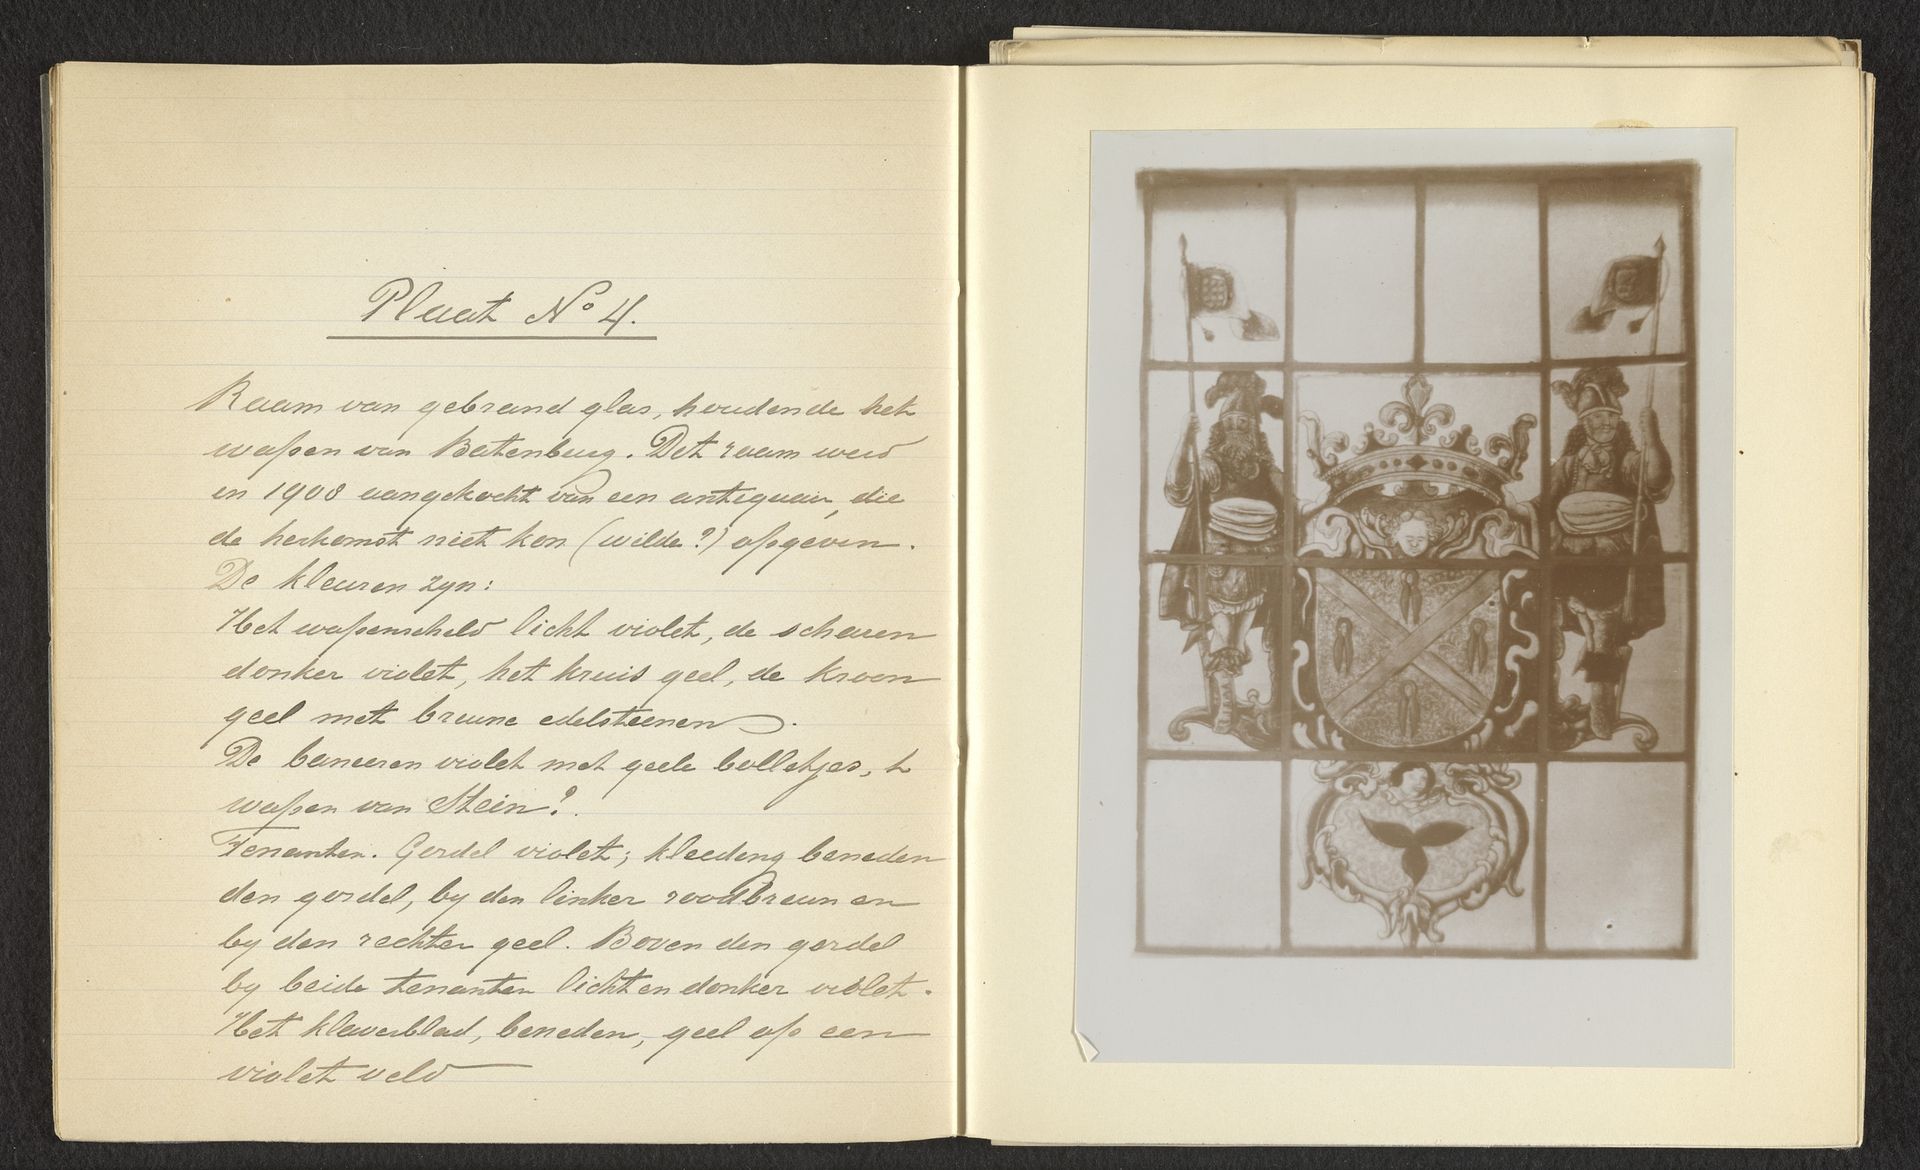 Plaat No 4.
Raam van gebrand glas, houdende het
wapen van Batenburg. Dit raam werd
in 1908 aangekocht van een antiquair, die
de herkomst niet kon (wilde?) opgeven.
De kleuren zyn:
Het wapenschild licht violet, de scharen
donker violet, het kruis geel, de kroon
geel met bruine edelsteenen.
De banieren violet met geele bolletjes, 't
wapen van Stein?.
Tenanten. Gordel violet; kleeding beneden
den gordel, by den linker roodbruin en
by den rechter geel. Boven den gordel
by beide tenanten licht en donker violet.
Het klaverblad, beneden, geel op een
violet veld